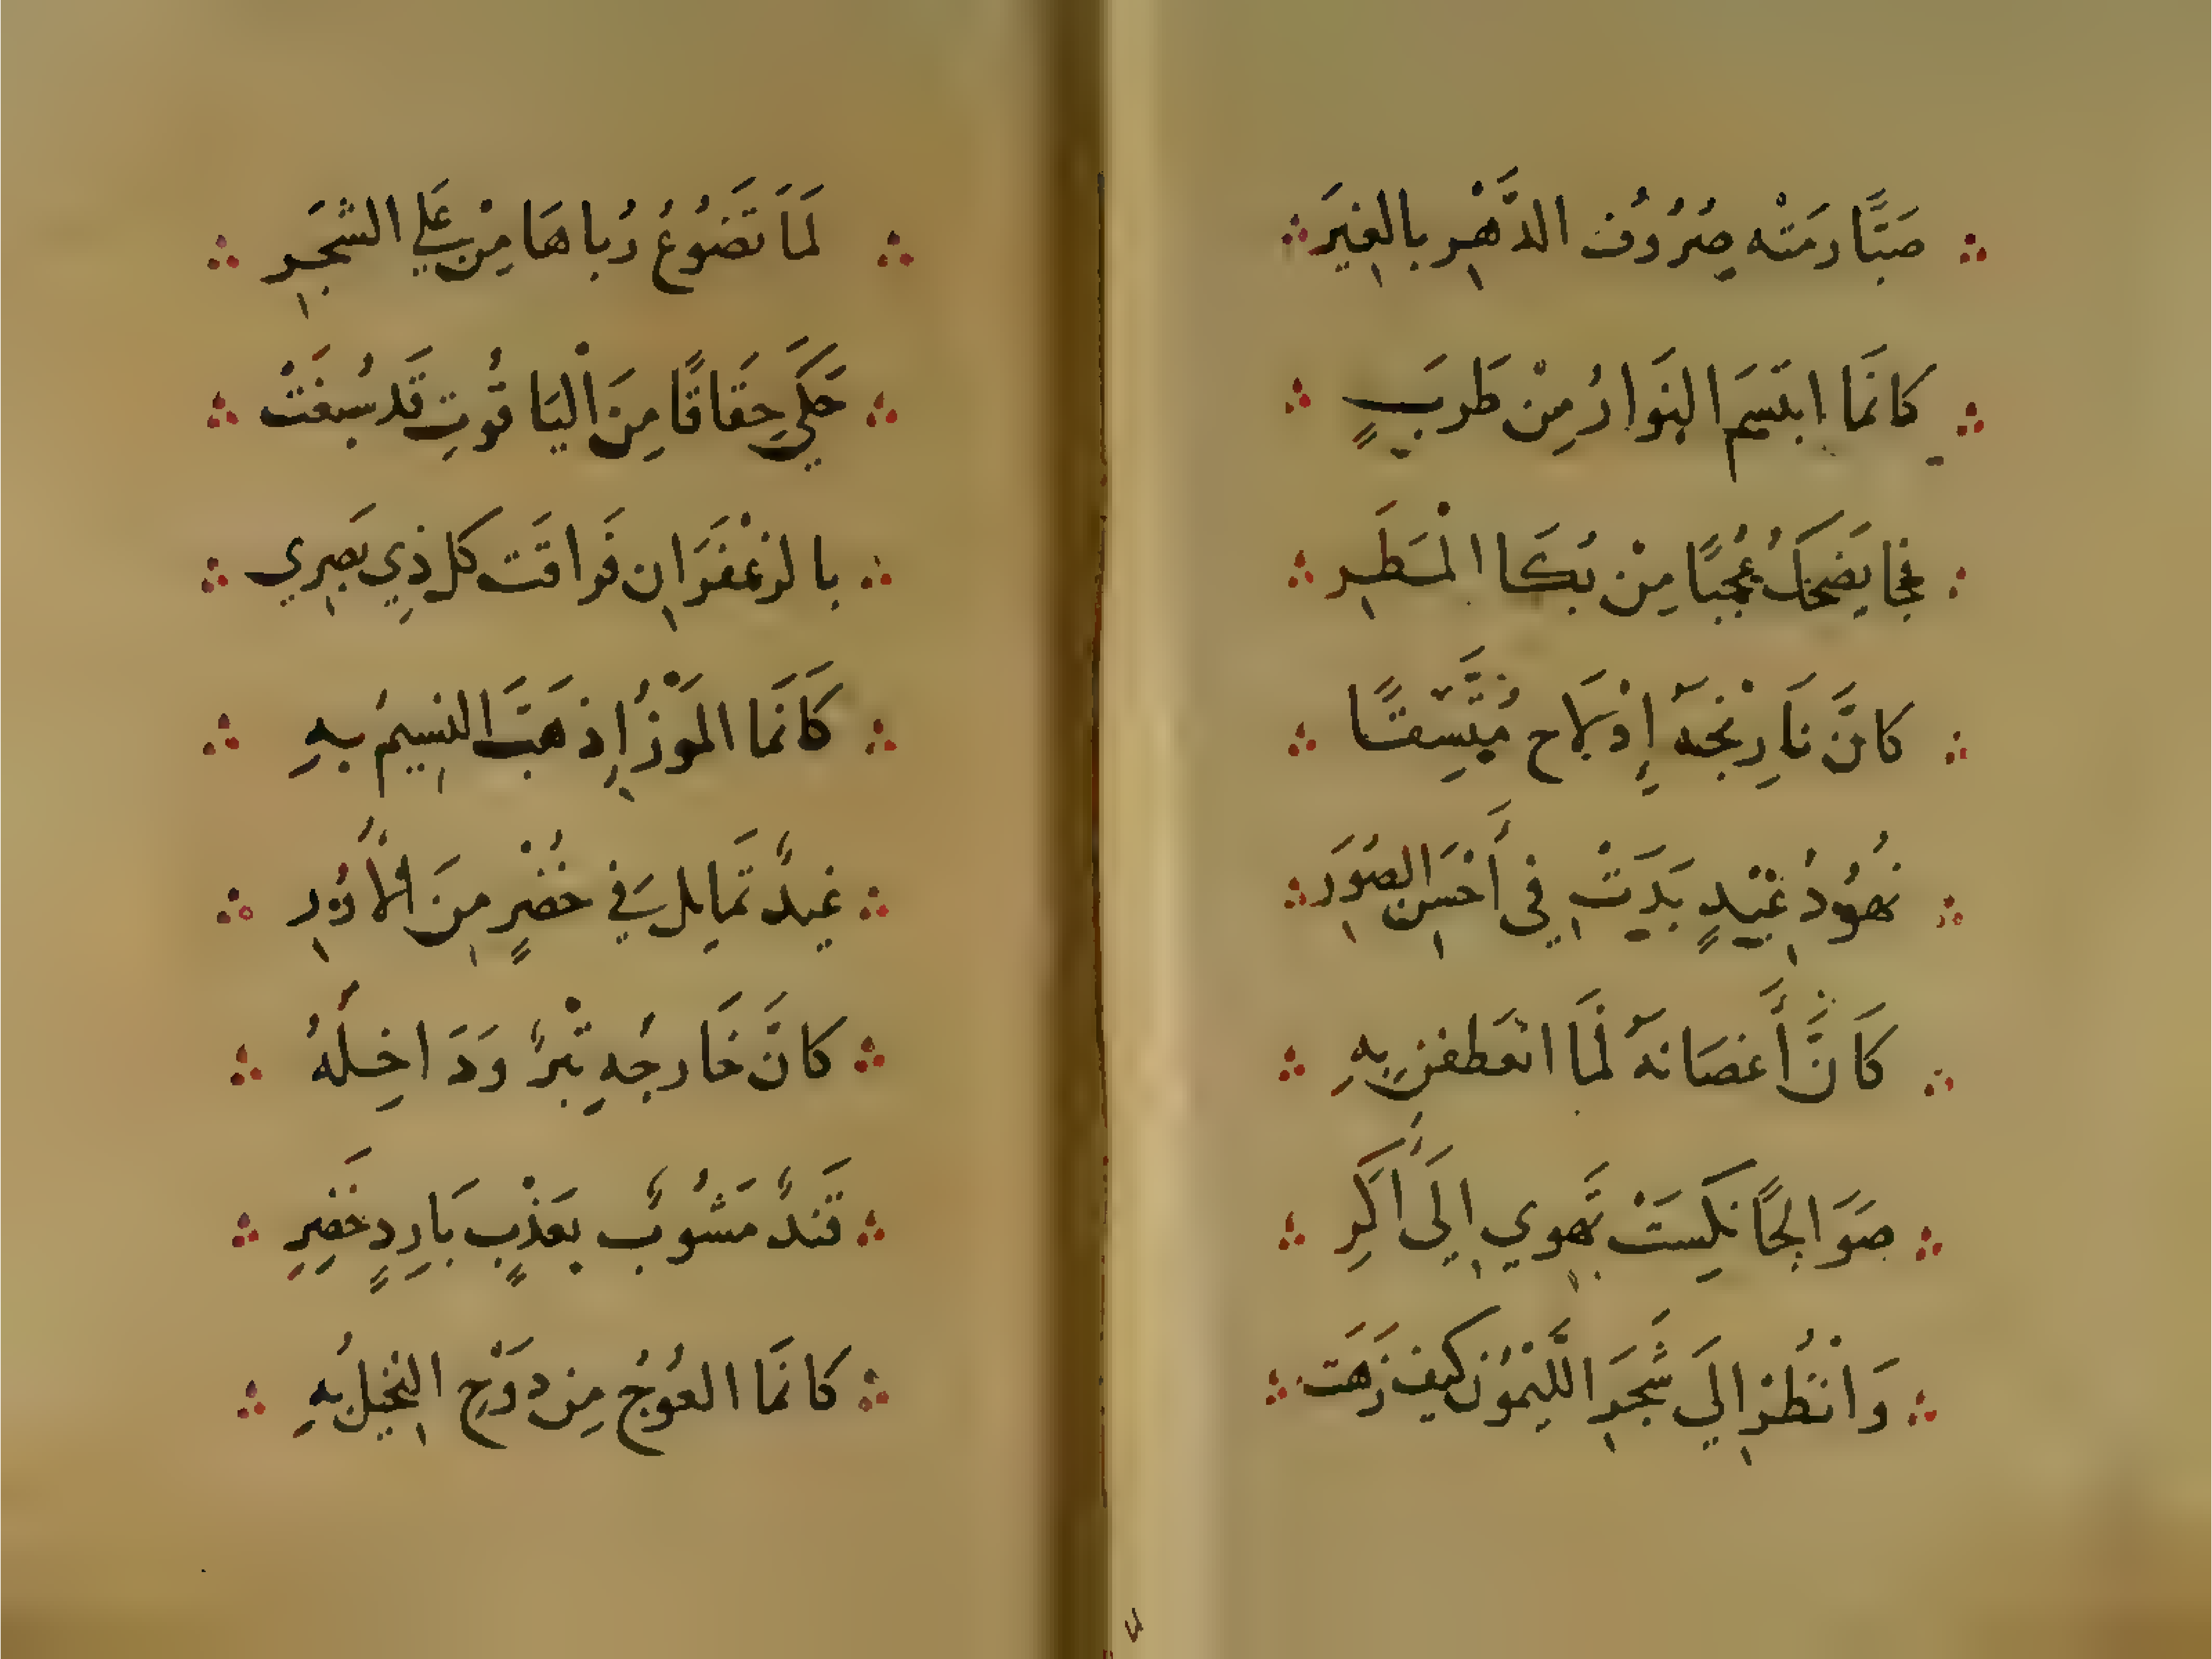 صَبًّا رَمَتْه صُرُوُف الدَّهْرِ بالغِيَرَ
كانَمَا ابتَسَم النَوارُ مِنْ طَربَبٍ
فجا يَضحَكُ عُجبًا مِنْ بُكَا المْطَرِ
كانَّ نَارِنْجَهُ إِذْ لَاح مُتَّسِقًا
نهُوُدُ غيْدٍ بَدَتْ فِى أَحْسَنِ الصُوَرِ
كَانَّ أَغصَانهُ لَمَا انعَطفن بِهِ
صَوَالجًا نكِسَتْ تَهوِي إِلَى أَكَرِ
وَانْظُرْ الَي شَجَرِ اللَّيْمُوُن كيف زَهَت
لَمَا تَضَوُعُ رُباهَا مِنْ عَلي الشجَرِ
حَكَي حِقَاقًا مِنَ اليَاقُوتِ قَد سُبغَتْ
بالزعْفَرَانِ فَراقَت كل ذِي بَصِري
كَانَمَا المَوْزُ إِذ هَبَّ النسِيمُ بهِ
غيدٌ تَمَايل فِي خُضْرٍ مِنَ الأُزُرِ
كانَّ خَارجُهِ تِبْرٌ وَدَاخِلُهُ
قَندٌ مَشُوبٌ بعَذْبٍ بَارِدٍ خَضِرِ
كانَمَا العُوُجُ مِن دَوْحِ النخِيلُ بهِ